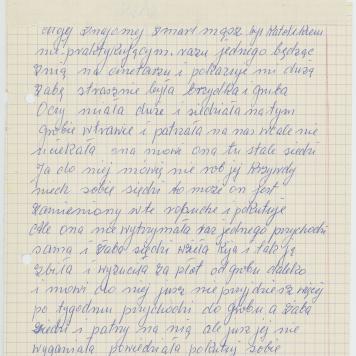 mojej znajomej zmarł mąsz był Katolikiem
nie praktykującym. razu jednego będąc
z nią na cmetarzu i pokazuje mi dużą
żabę strasznie była brzydka i gruba
Oczy miała duże i siedziała na tym
Grobie w trawie i patrzała na nas wcale nie
uciekała ona mówi ona tu stale siedzi
Ja do niej mówię nie rob jej Krzywdy
niech sobie siedzi bo może on jest
zamieniony w te ropuche i pokutuje
Ale ona nie wytrzymała raz jednego przychodzi
sama i żaba siedzi wzieła kija i tak ją
zbiła i wyrzuciła za płot od grobu daleko
i mowi do niej jusz nie przyjdziesz więcej
po tygodniu przychodzi do grobu a żaba
siedzi i patrzy na nią ale jusz jej nie
wyganiała powiedziała pokutuj sobie